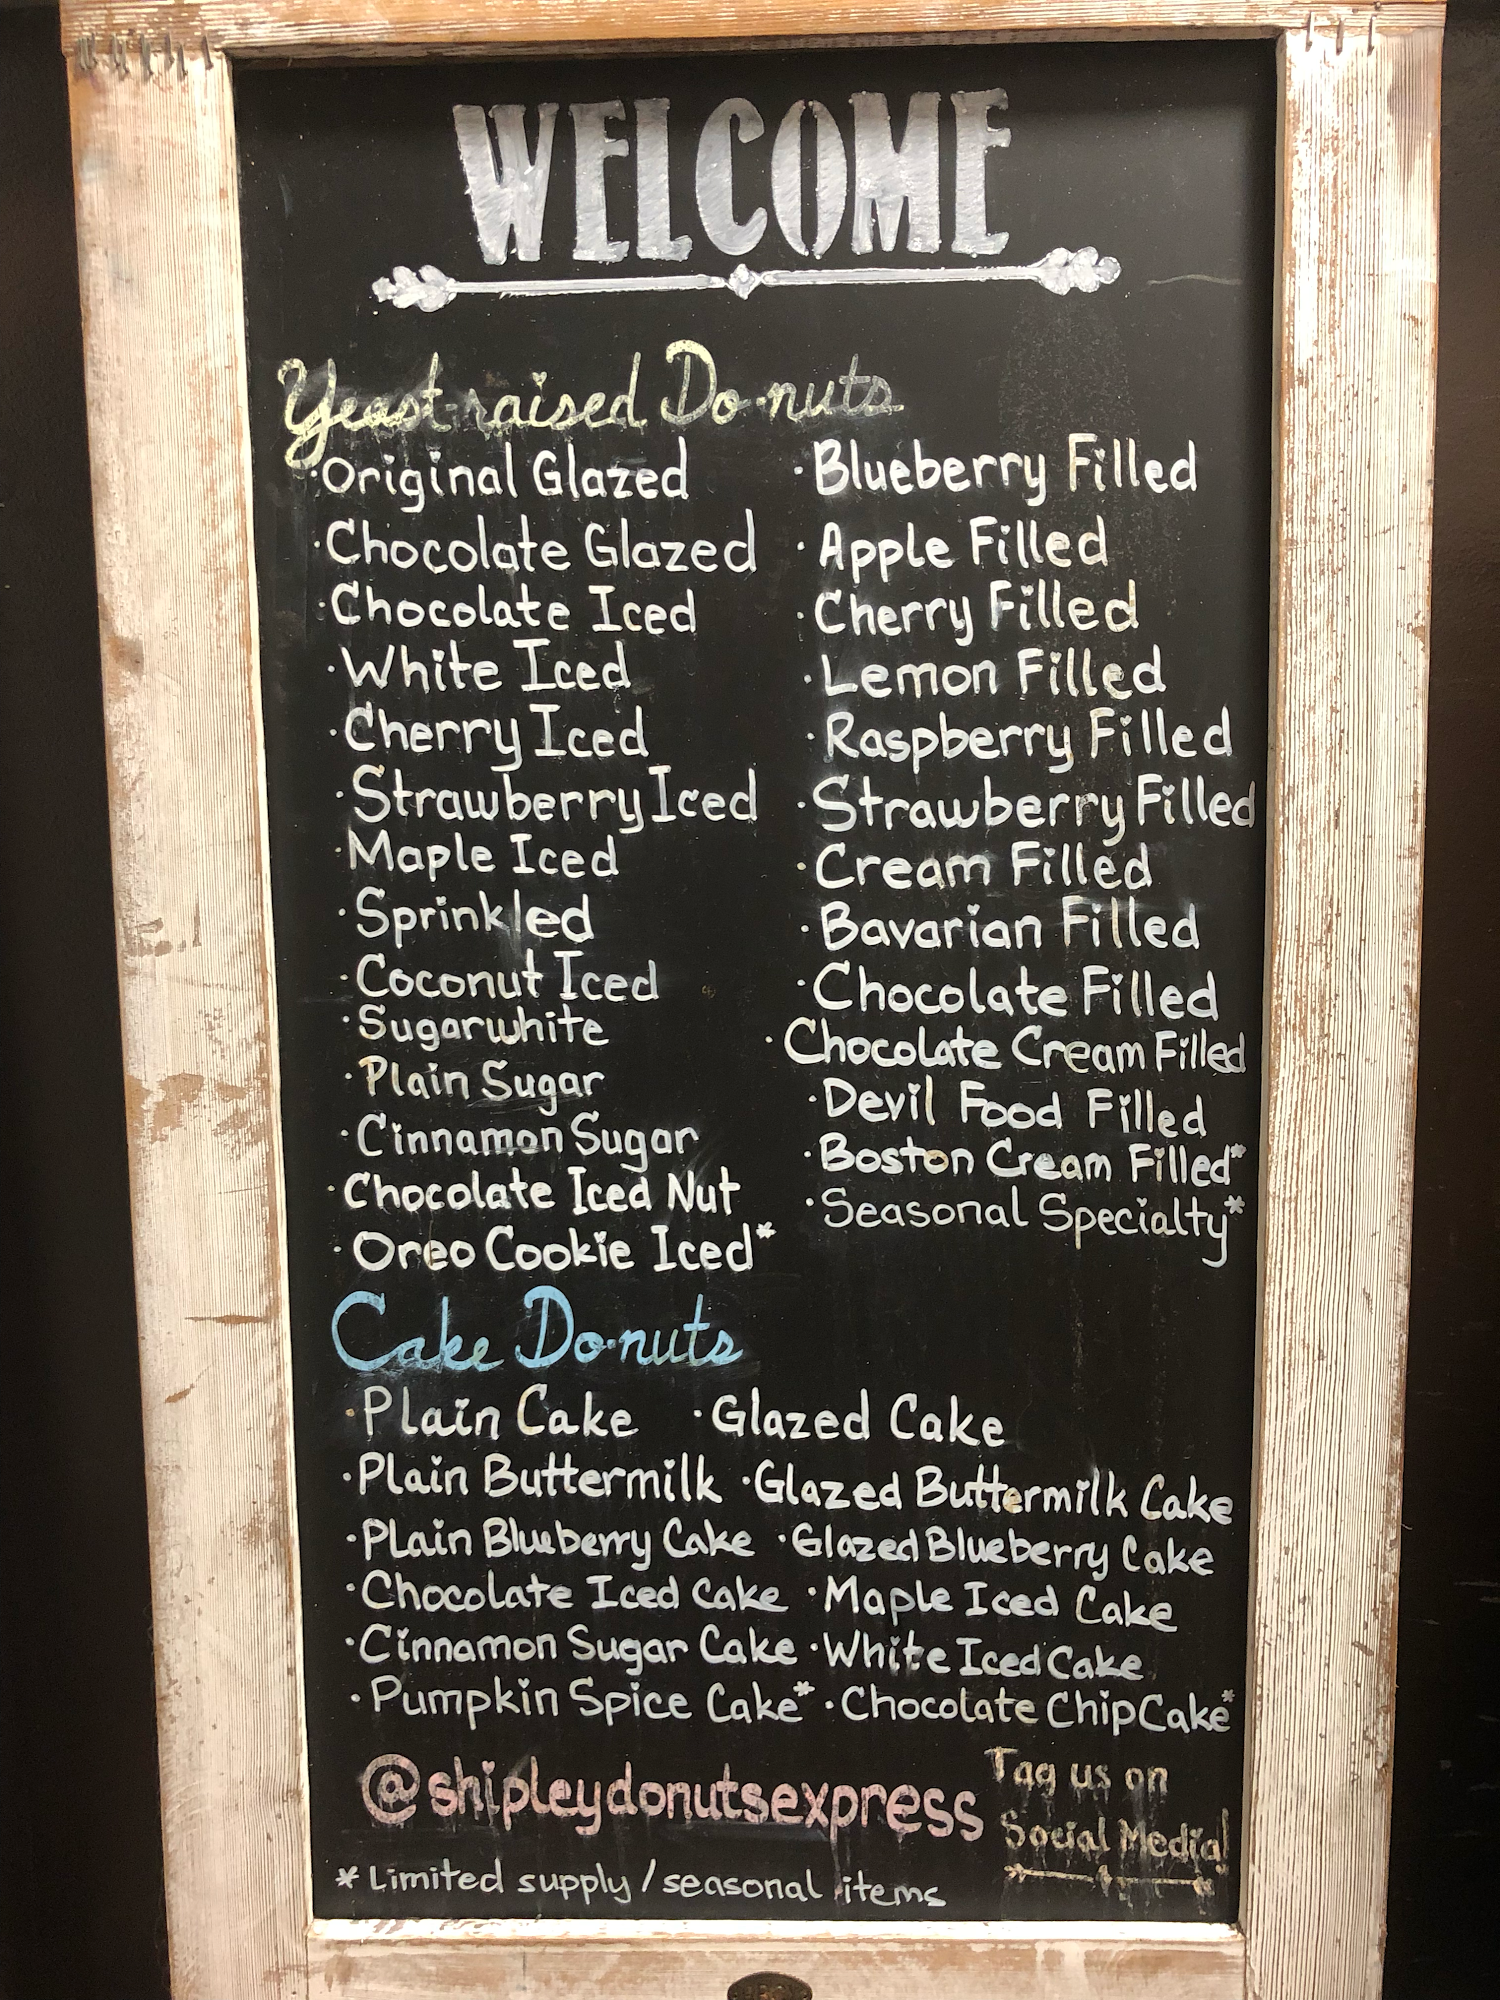 WELCOME
Yeast-raised Do-nuts
·Original Glazed
·Chocolate Glazed
·Chocolate Iced
·White Iced
·Cherry Iced
·Strawberry Iced
·Maple Iced
·Sprinkled
·Coconut Iced
·Sugarwhite
·Plain Sugar
·Cinnamon Sugar
·Chocolate Iced Nut
·Oreo Cookie Iced*
·Blueberry Filled
·Apple Filled
·Cherry Filled
·Lemon Filled
·Raspberry Filled
·Strawberry Filled
·Cream Filled
·Bavarian Filled
·Chocolate Filled
·Chocolate Cream Filled
·Devil Food Filled
·Boston Cream Filled*
·Seasonal Specialty*
Cake Do-nuts
·Plain Cake ·Glazed Cake
·Plain Buttermilk ·Glazed Buttermilk Cake
·Plain Blueberry Cake ·Glazed Blueberry Cake
·Chocolate Iced Cake ·Maple Iced Cake
·Cinnamon Sugar Cake ·White Iced Cake
·Pumpkin Spice Cake* ·Chocolate Chip Cake*
@shipleydonutsexpress
Tag us on
Social Media!
* Limited supply / seasonal items